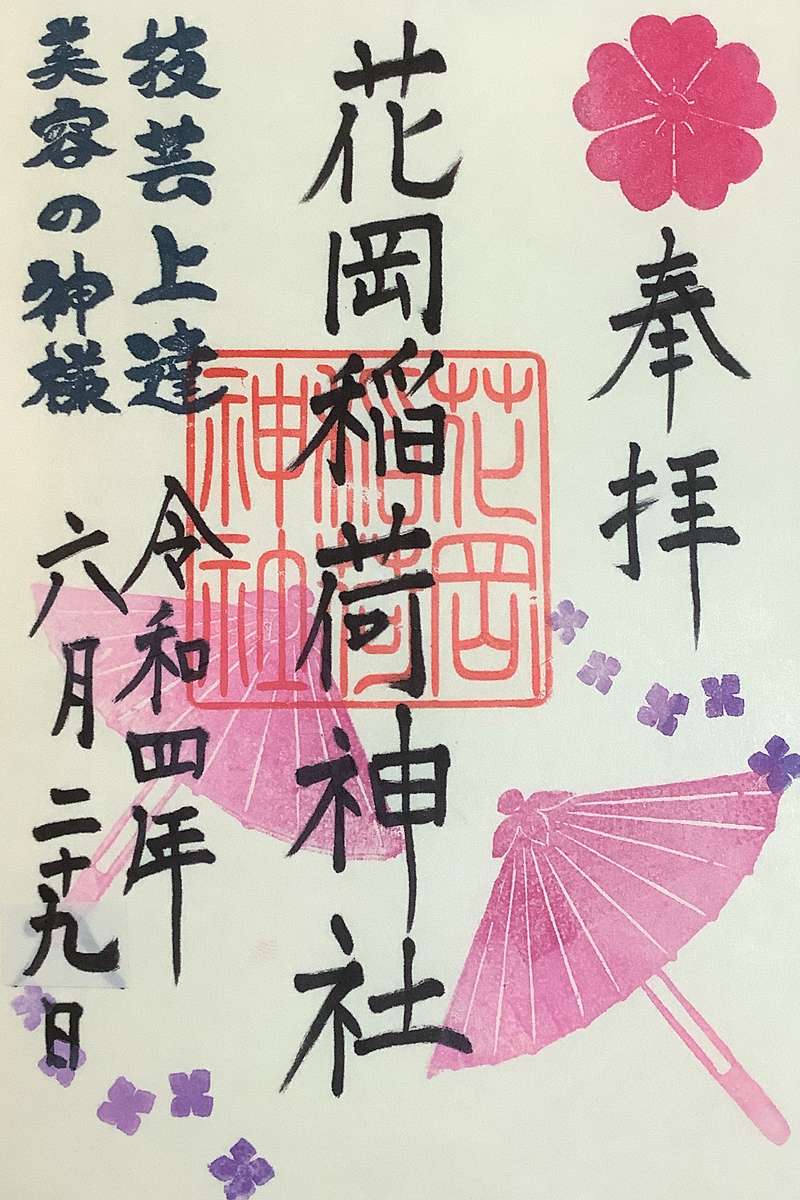 奉拝
花岡稲荷神社
花岡
稲荷
神社
技芸上達
美容の神様
令和四年
六月二十九日